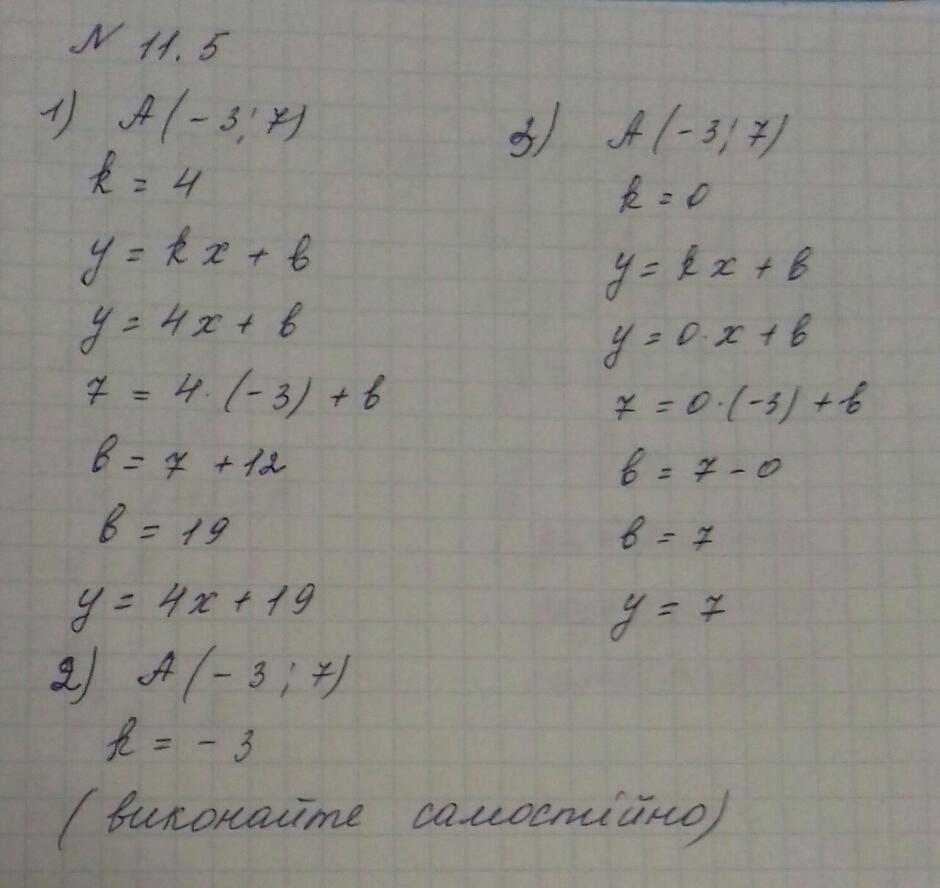 N 11.5
1) A(-3;7)
k = 4
y = kx + b
y = 4x + b
7 = 4·(-3) + b
b = 7 + 12
b = 19
y = 4x + 19
2) A(-3;7)
k = -3
(виконайте самостійно)
3) A(-3;7)
k = 0
y = kx + b
y = 0·x + b
7 = 0·(-3) + b
b = 7 - 0
b = 7
y = 7